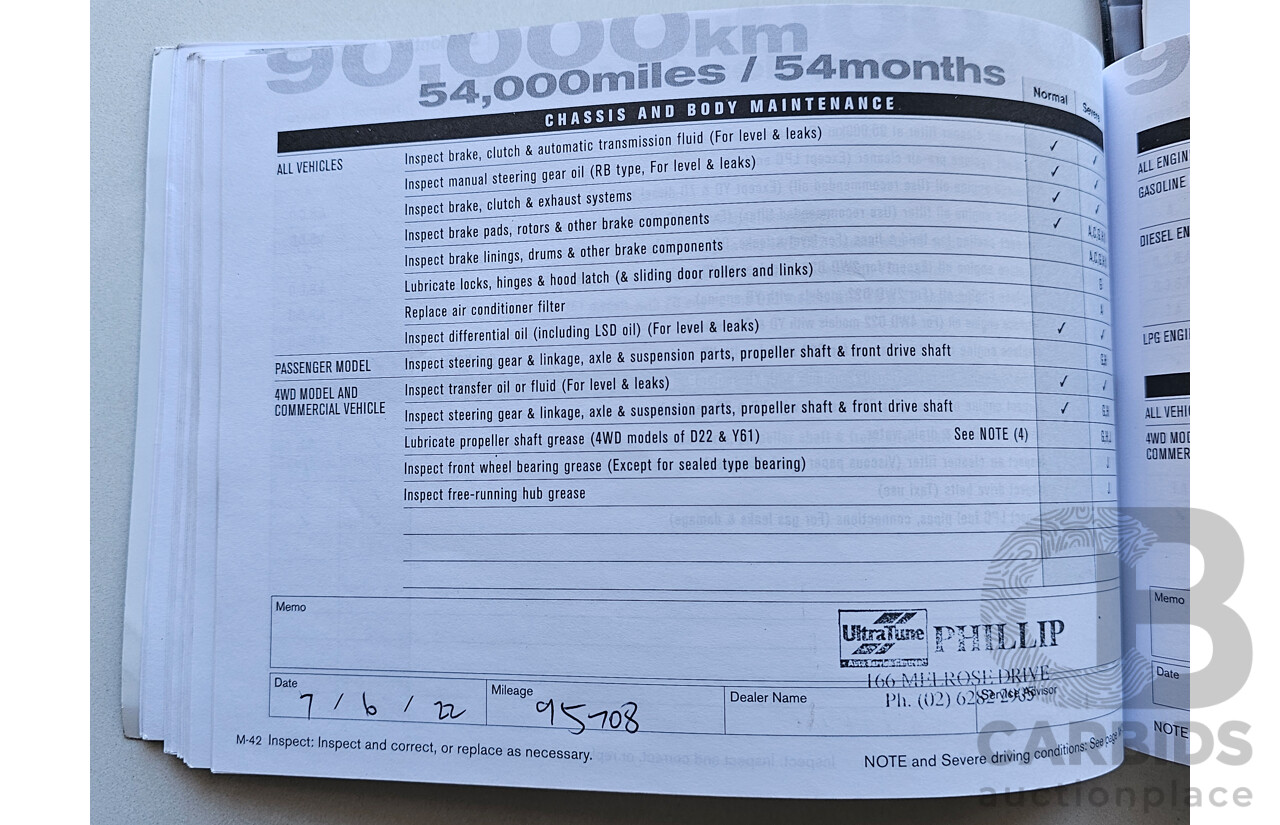 90,000km
54,000miles / 54months
CHASSIS AND BODY MAINTENANCE Normal Severe
ALL VEHICLES Inspect brake, clutch & automatic transmission fluid (For level & leaks) ✓ ✓
Inspect manual steering gear oil (RB type, For level & leaks) ✓ ✓
Inspect brake, clutch & exhaust systems ✓ ✓
Inspect brake pads, rotors & other brake components ✓ A,C,G,H,I
Inspect brake linings, drums & other brake components A,C,G,H,I
Lubricate locks, hinges & hood latch (& sliding door rollers and links) G
Replace air conditioner filter A
Inspect differential oil (including LSD oil) (For level & leaks) ✓ ✓
PASSENGER MODEL Inspect steering gear & linkage, axle & suspension parts, propeller shaft & front drive shaft G,H
4WD MODEL AND COMMERCIAL VEHICLE Inspect transfer oil or fluid (For level & leaks) ✓ ✓
Inspect steering gear & linkage, axle & suspension parts, propeller shaft & front drive shaft ✓ G,H
Lubricate propeller shaft grease (4WD models of D22 & Y61) See NOTE (4) G,H,J
Inspect front wheel bearing grease (Except for sealed type bearing) J
Inspect free-running hub grease J
Memo
UltraTune PHILLIP
Auto Service
166 MELROSE DRIVE
Ph. (02) 6282 2935
Date 7 / 6 / 22 Mileage 95708 Dealer Name Service Advisor
M-42 Inspect: Inspect and correct, or replace as necessary.
NOTE and Severe driving conditions: See page
ALL ENGIN
GASOLINE
DIESEL EN
LPG ENGI
ALL VEHI
4WD MOD
COMMER
Memo
Date
NOTE
CB
CARBIDS
auctionplace